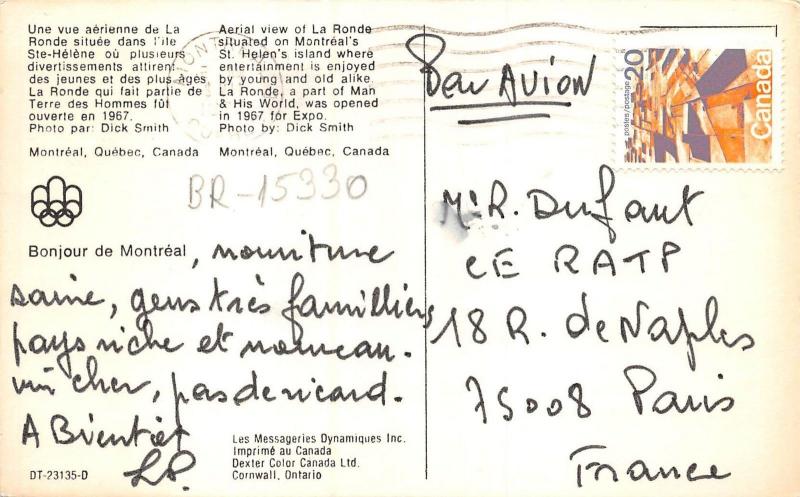 Une vue aérienne de La
Ronde située dans l'île
Ste-Hélène où plusieurs
divertissements attirent
des jeunes et des plus âgés
La Ronde qui fait partie de
Terre des Hommes fût
ouverte en 1967.
Photo par: Dick Smith
Montréal, Québec, Canada
Aerial view of La Ronde
situated on Montréal's
St. Helen's island where
entertainment is enjoyed
by young and old alike.
La Ronde, a part of Man
& His World, was opened
in 1967 for Expo.
Photo by: Dick Smith
Montréal, Québec, Canada
BR-15330
Bonjour de Montréal, nouriture
saine, gens très familliers
pays riche et nouveau.
vin cher, pas de ricard.
A Bientiet
LP.
DT-23135-D
Les Messageries Dynamiques Inc.
Imprimé au Canada
Dexter Color Canada Ltd.
Cornwall, Ontario
Par AVION
postes/postage
20
Canada
Mr R. Dufaut
CE RATP
18 R. de Naples
75008 Paris
France